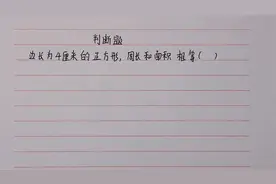 判断题
边长为4厘米的正方形，周长和面积相等（ ）